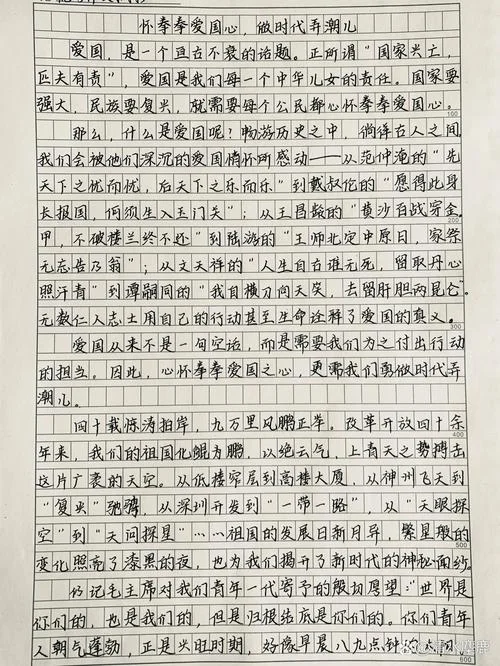 怀拳拳爱国心，做时代弄潮儿
爱国，是一个亘古不衰的话题。正所谓“国家兴亡，
匹夫有责”，爱国是我们每一个中华儿女的责任。国家要
强大，民族要复兴，就需要每个公民都心怀拳拳爱国心。
100
那么，什么是爱国呢？畅游历史之中，徜徉古人之间
我们会被他们深沉的爱国情怀所感动——从范仲淹的“先
天下之忧而忧，后天下之乐而乐”到戴叔伦的“愿得此身
长报国，何须生入玉门关”；从王昌龄的“黄沙百战穿金
200
甲，不破楼兰终不还”到陆游的“王师北定中原日，家祭
无忘告乃翁”；从文天祥的“人生自古谁无死，留取丹心
照汗青”到谭嗣同的“我自横刀向天笑，去留肝胆两昆仑”
无数仁人志士用自己的行动甚至生命诠释了爱国的真义。
300
爱国从来不是一句空话，而是需要我们为之付出行动
的担当。因此，心怀拳拳爱国之心，更需我们勇做时代弄
潮儿。
四十载惊涛拍岸，九万里风鹏正举。改革开放四十余
400
年来，我们的祖国化鲲为鹏，以绝云气，上青天之势搏击
这片广袤的天空。从低楼窄屋到高楼大厦，从神州飞天到
“复兴”驰骋，从深圳开发到“一带一路”，从“天眼探
空”到“天问探星”……祖国的发展日新月异，繁星般的
500
变化照亮了漆黑的夜，也为我们揭开了新时代的神秘面纱
仍记毛主席对我们青年一代寄予的殷切愿望：“世界是
你们的，也是我们的，但是归根结底是你们的。你们青年
人朝气蓬勃，正是兴旺时期，好像早晨八九点钟的
600